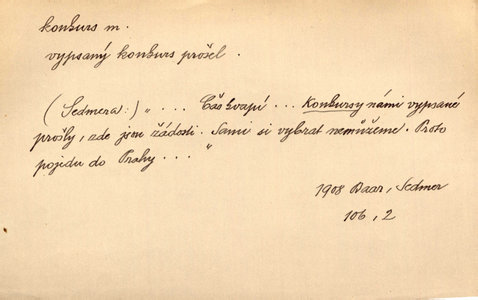 konkurs m.
vypsaný konkurs prošel.
(Sedmera:) „ ... Čas kvapí ... Konkursy námi vypsané
prošly, zde jsou žádosti. Sami si vybrat nemůžeme. Proto
pojedu do Prahy ... "
1908 Baar, Sedmer
106, 2